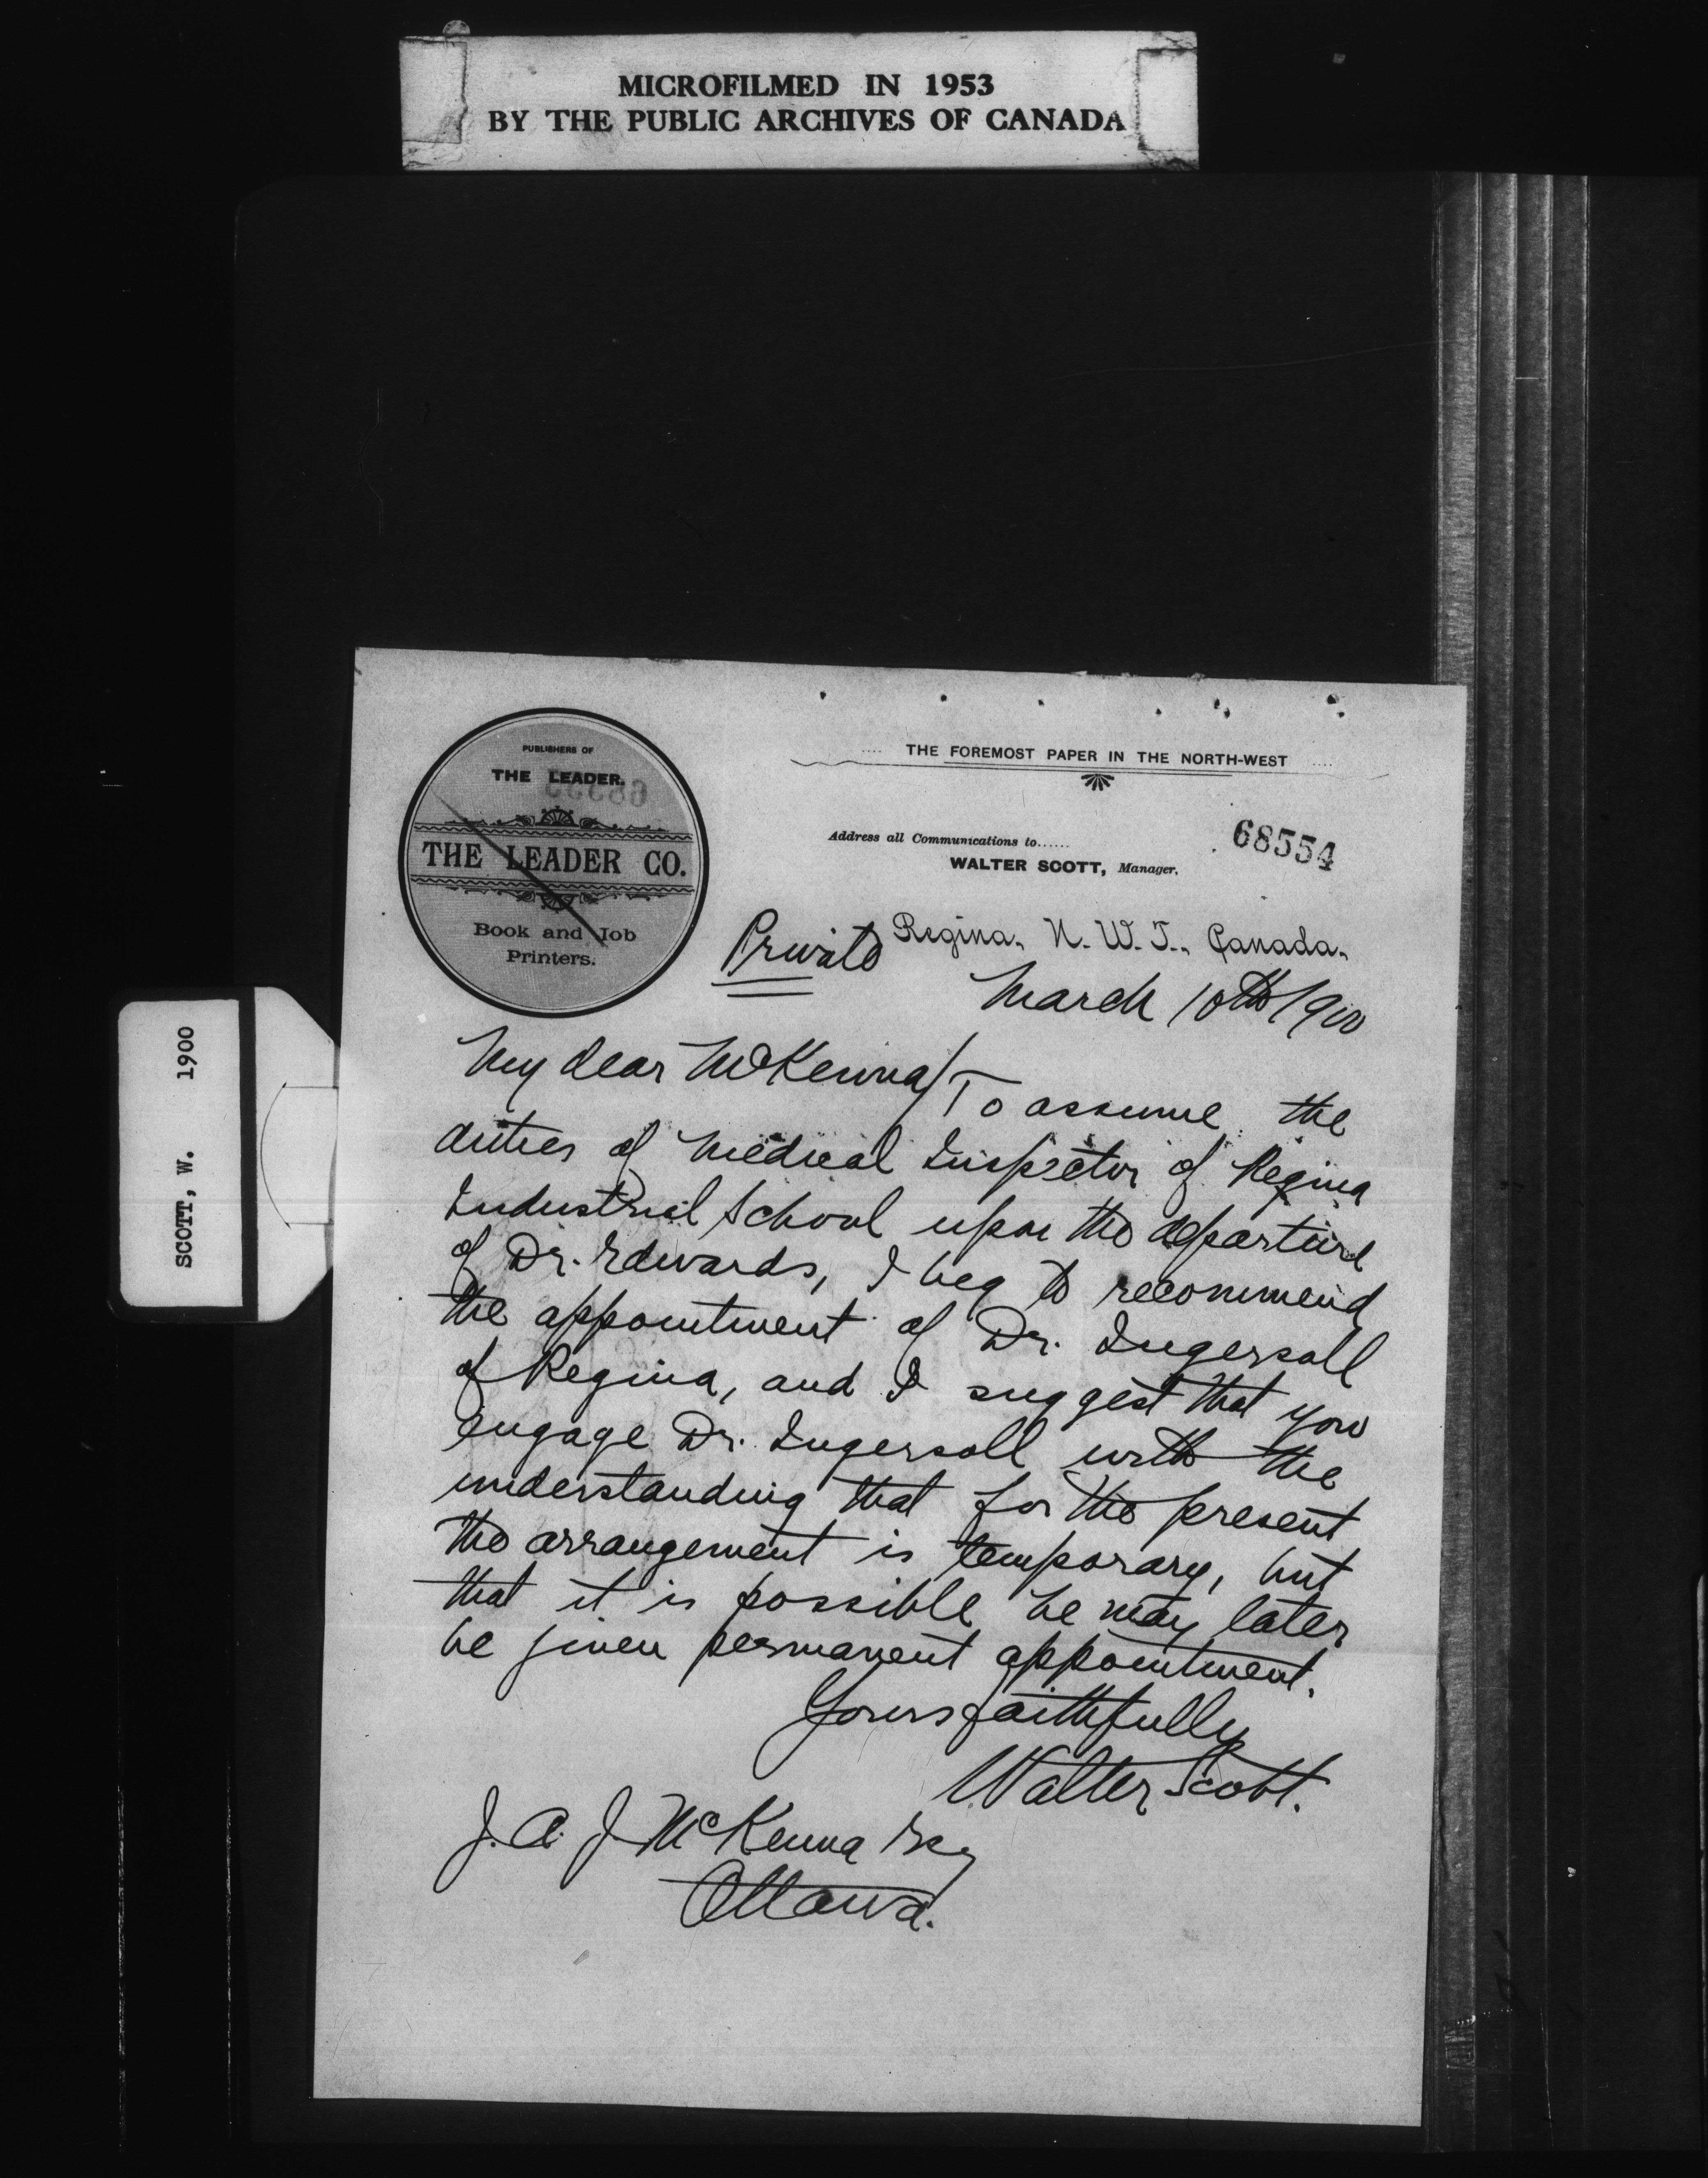 MICROFILMED IN 1953
BY THE PUBLIC ARCHIVES OF CANADA
SCOTT, W. 1900
PUBLISHERS OF
THE LEADER.
THE LEADER CO.
Book and Job
Printers.
THE FOREMOST PAPER IN THE NORTH-WEST
Address all Communications to......
WALTER SCOTT, Manager.
68554
Private
Regina, N. W. T., Canada,
March 10th 1900
My dear McKenna/
To assume the
duties of Medical Inspector of Regina
Industrial School upon the departure
of Dr. Edwards, I beg to recommend
the appointment of Dr. Ingersoll
of Regina, and I suggest that you
engage Dr. Ingersoll with the
understanding that for the present
the arrangement is temporary, but
that it is possible he may later
be given permanent appointment.
Yours faithfully
Walter Scott.
J. A. J. McKenna Esq
Ottawa.